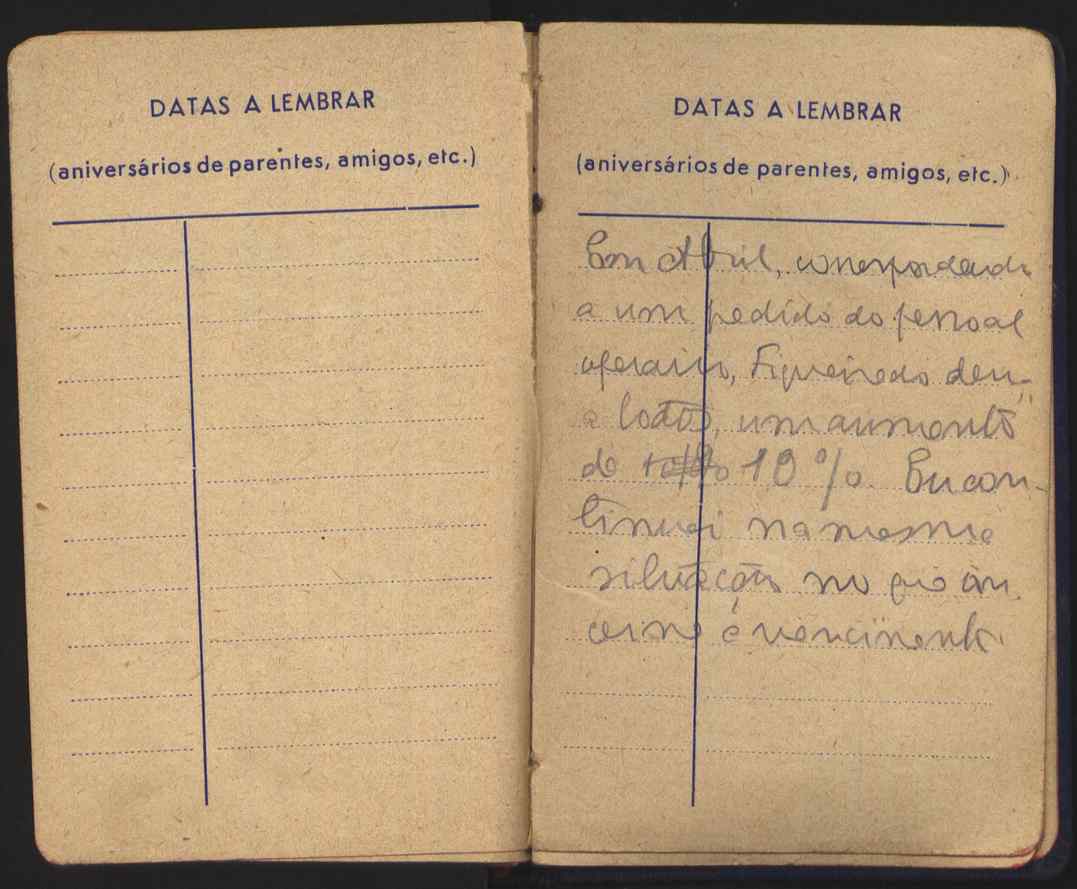 DATAS A LEMBRAR
(aniversários de parentes, amigos, etc.)
DATAS A LEMBRAR
(aniversários de parentes, amigos, etc.)
Em Abril, correspondendo
a um pedido do pessoal
operario, Figueiredo deu,
a todos, um aumento
de 10 %. Eu con-
tinuei na mesma
situação no que
e vencimento